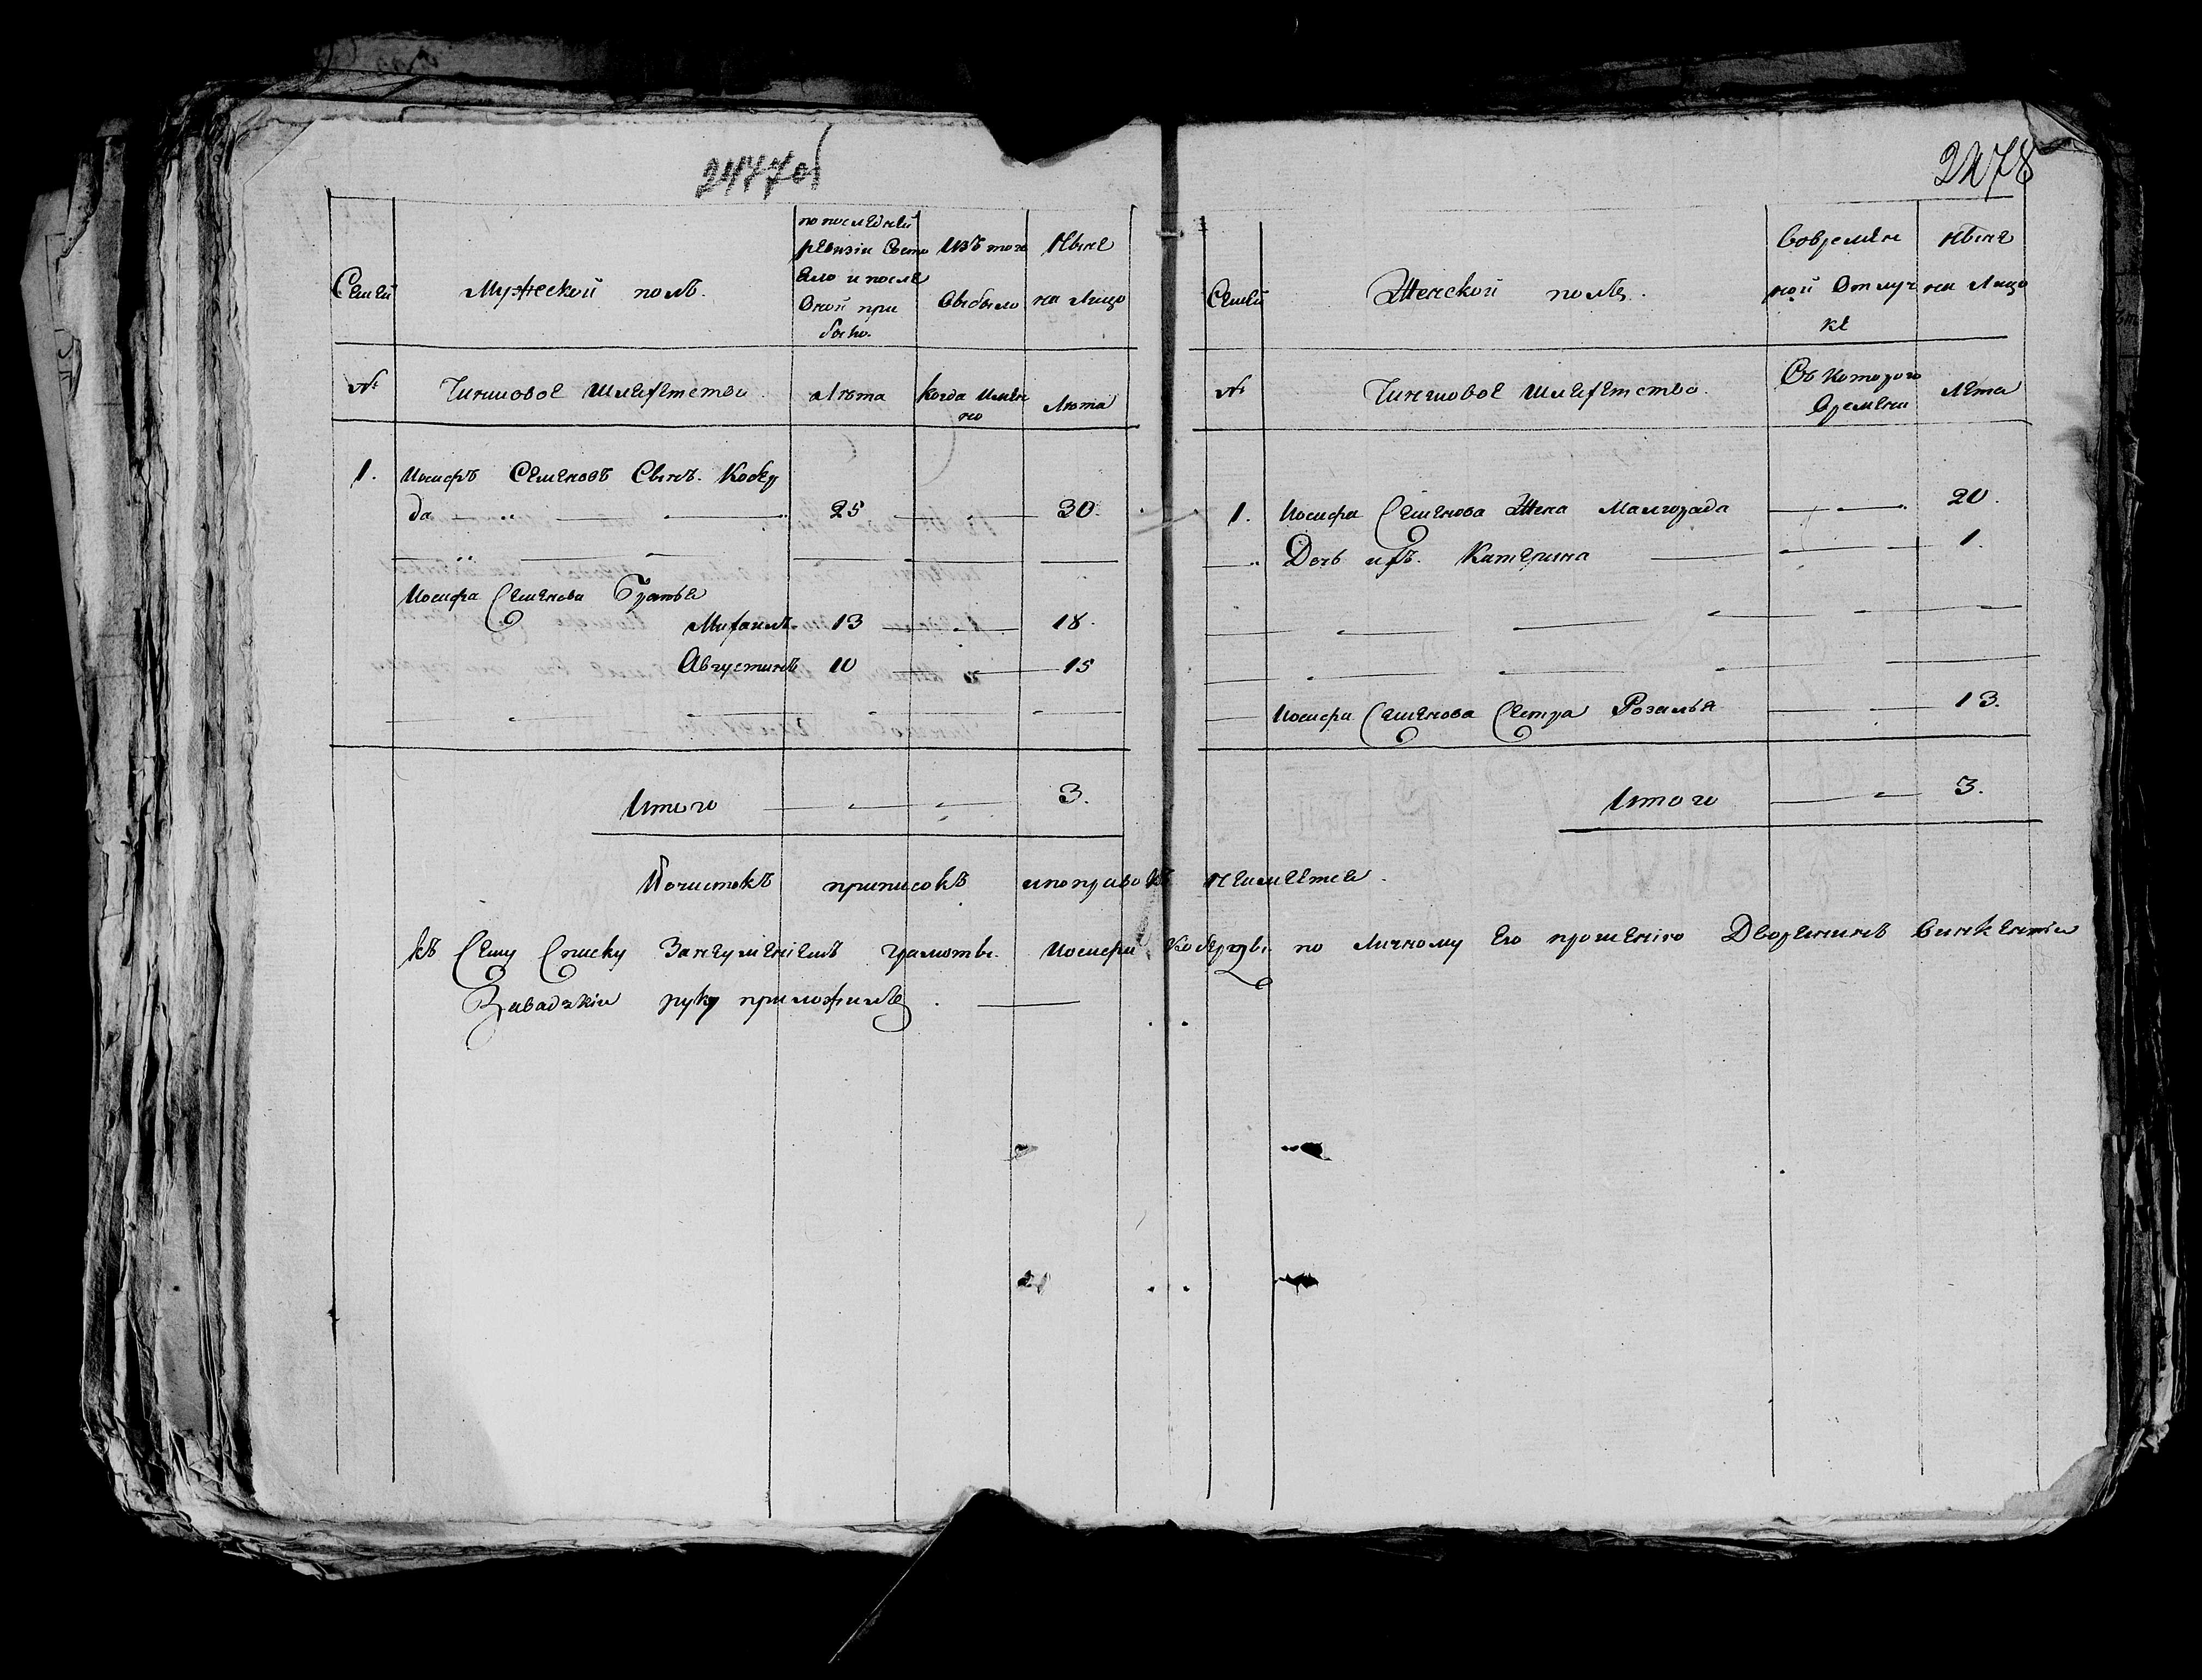 2477об
Семей
Мужеской полъ.
по последней
ревизіи состо
яло и после
оной при
было.
изъ того
выбыло
Ныне
на лицо
№
Чиншовое шляхетство
лѣта
когда имян
но
лѣта
1. Иосифъ Семеновъ Сынъ. Кобер
да 25 30.
Иосифа Семенова Братья
Михаилъ 13 18.
Августинъ 10 15
Итого 3.
2478
Семей
Женской полъ.
Вовремян
ной отлуч
ке
Ныне
на лицо
№
Чиншовое шляхетство.
Съ которого
времяни
лета
1. Иосифа Семенова Жена Малгорада 20.
Дочь ихъ. Катерина 1.
Иосифа Семенова Сетра Розалья 13.
Итого 3.
Почистокъ приписокъ ипоправокъ неимеетса.
къ Сему Списку Занеуменіемъ грамоты. Иосифа Коберды по личному его прошенію Дворянинъ Викентій
Завадзкій руку приложилъ.